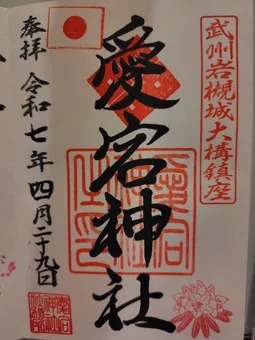 武州岩槻城大構鎮座
愛宕神社
奉拝 令和七年四月二十九日